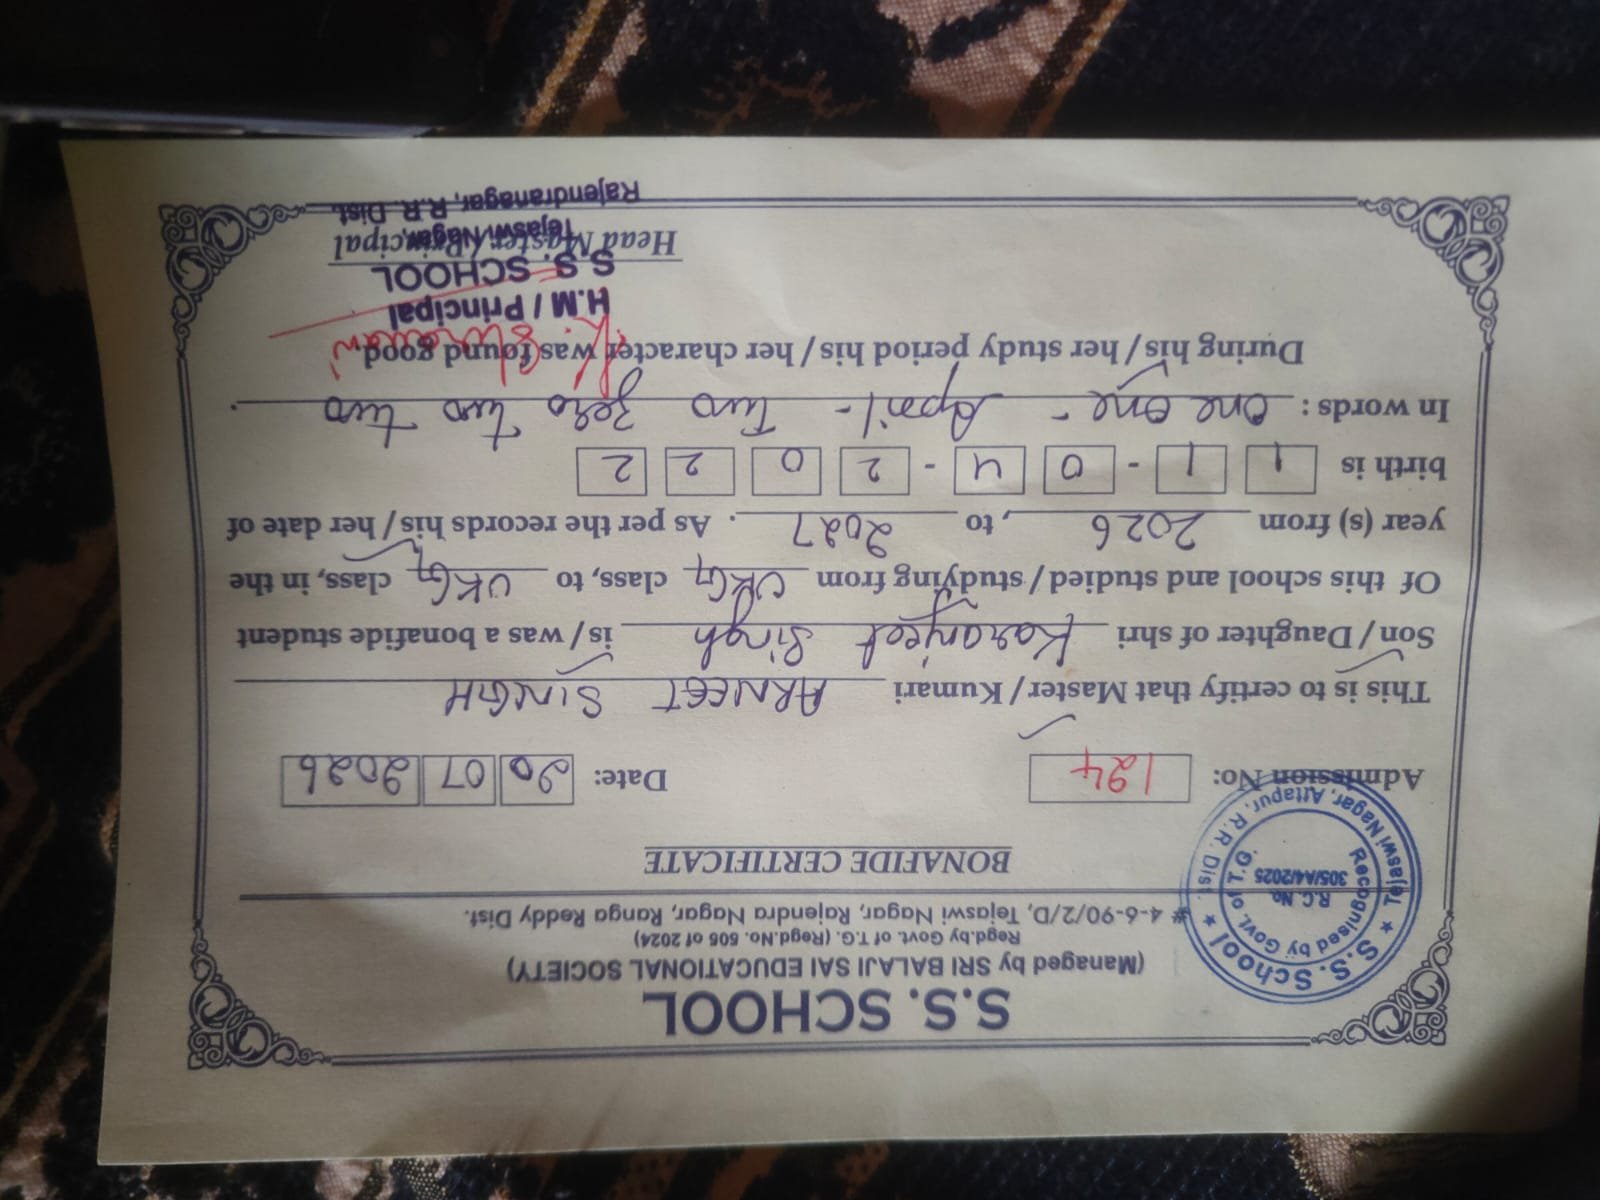 S.S. SCHOOL
(Managed by SRI BALAJI SAI EDUCATIONAL SOCIETY)
Regd.by Govt. of T.G. (Regd.No. 505 of 2024)
# 4-6-90/2/D, Tejaswi Nagar, Rajendra Nagar, Ranga Reddy Dist.
S.S. School
Tejaswi Nagar, Attapur, R.R. Dist.
Recognised by Govt. of T.G.
R.C. No
305/A4/2025
BONAFIDE CERTIFICATE
Admission No: 124 Date: 20 07 2026
This is to certify that Master / Kumari ARNEET SINGH
Son / Daughter of shri Karanjeet Singh is / was a bonafide student
Of this school and studied / studying from UKG class, to UKG class, in the
year (s) from 2026, to 2027. As per the records his / her date of
birth is 1 1 - 0 4 - 2 0 2 2
In words : One One - April - Two Zero two two.
During his / her study period his / her character was found good.
H.M / Principal
S.S. SCHOOL
Head Master / Principal
Tejaswi Nagar,
Rajendranagar, R.R. Dist.